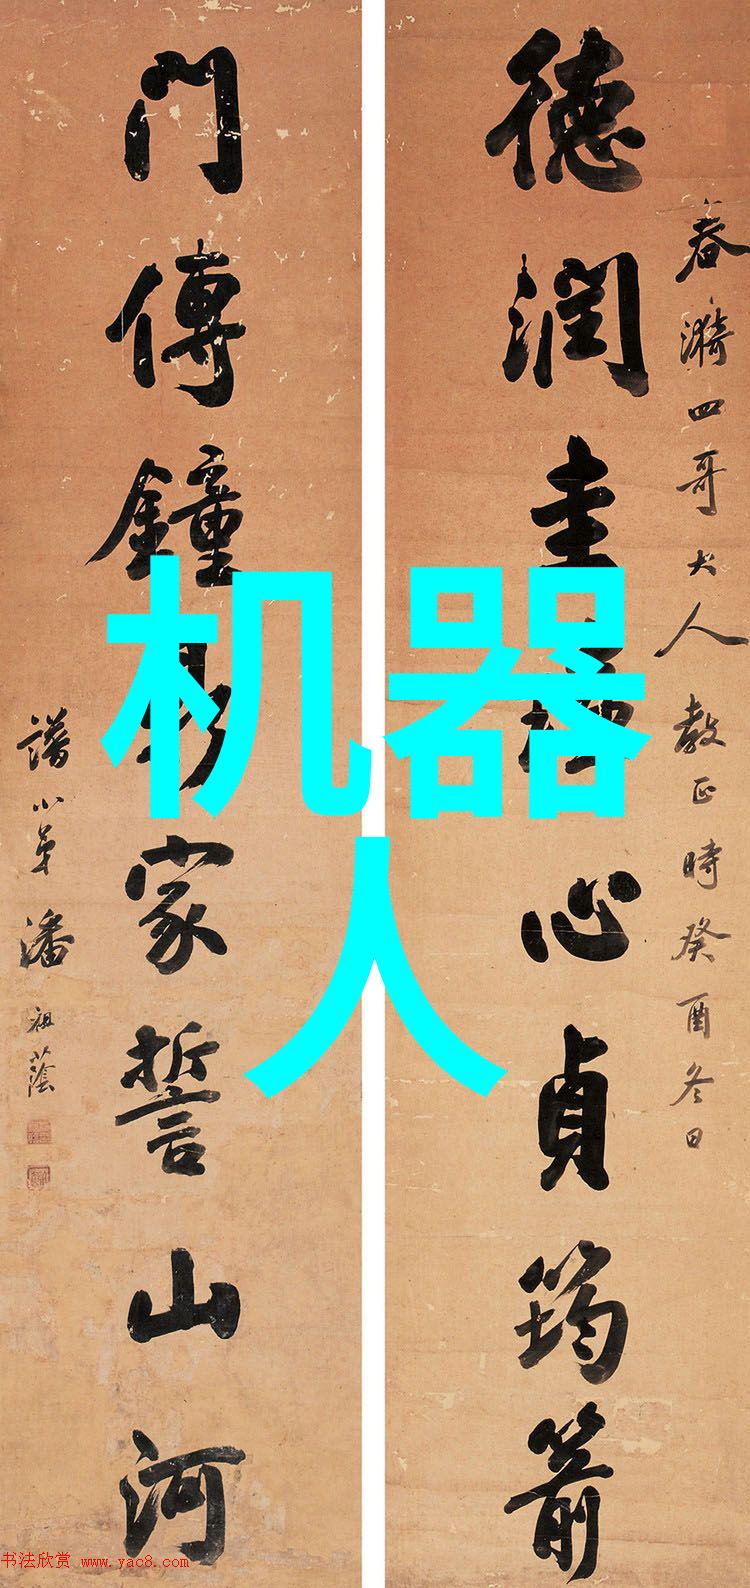 春漪四哥大人教正時癸酉冬日
德潤圭心貞筠箭
門傳鐘家誓山河
譜小弟潘祖蔭
机器
人
书法欣赏 www.yac8.com